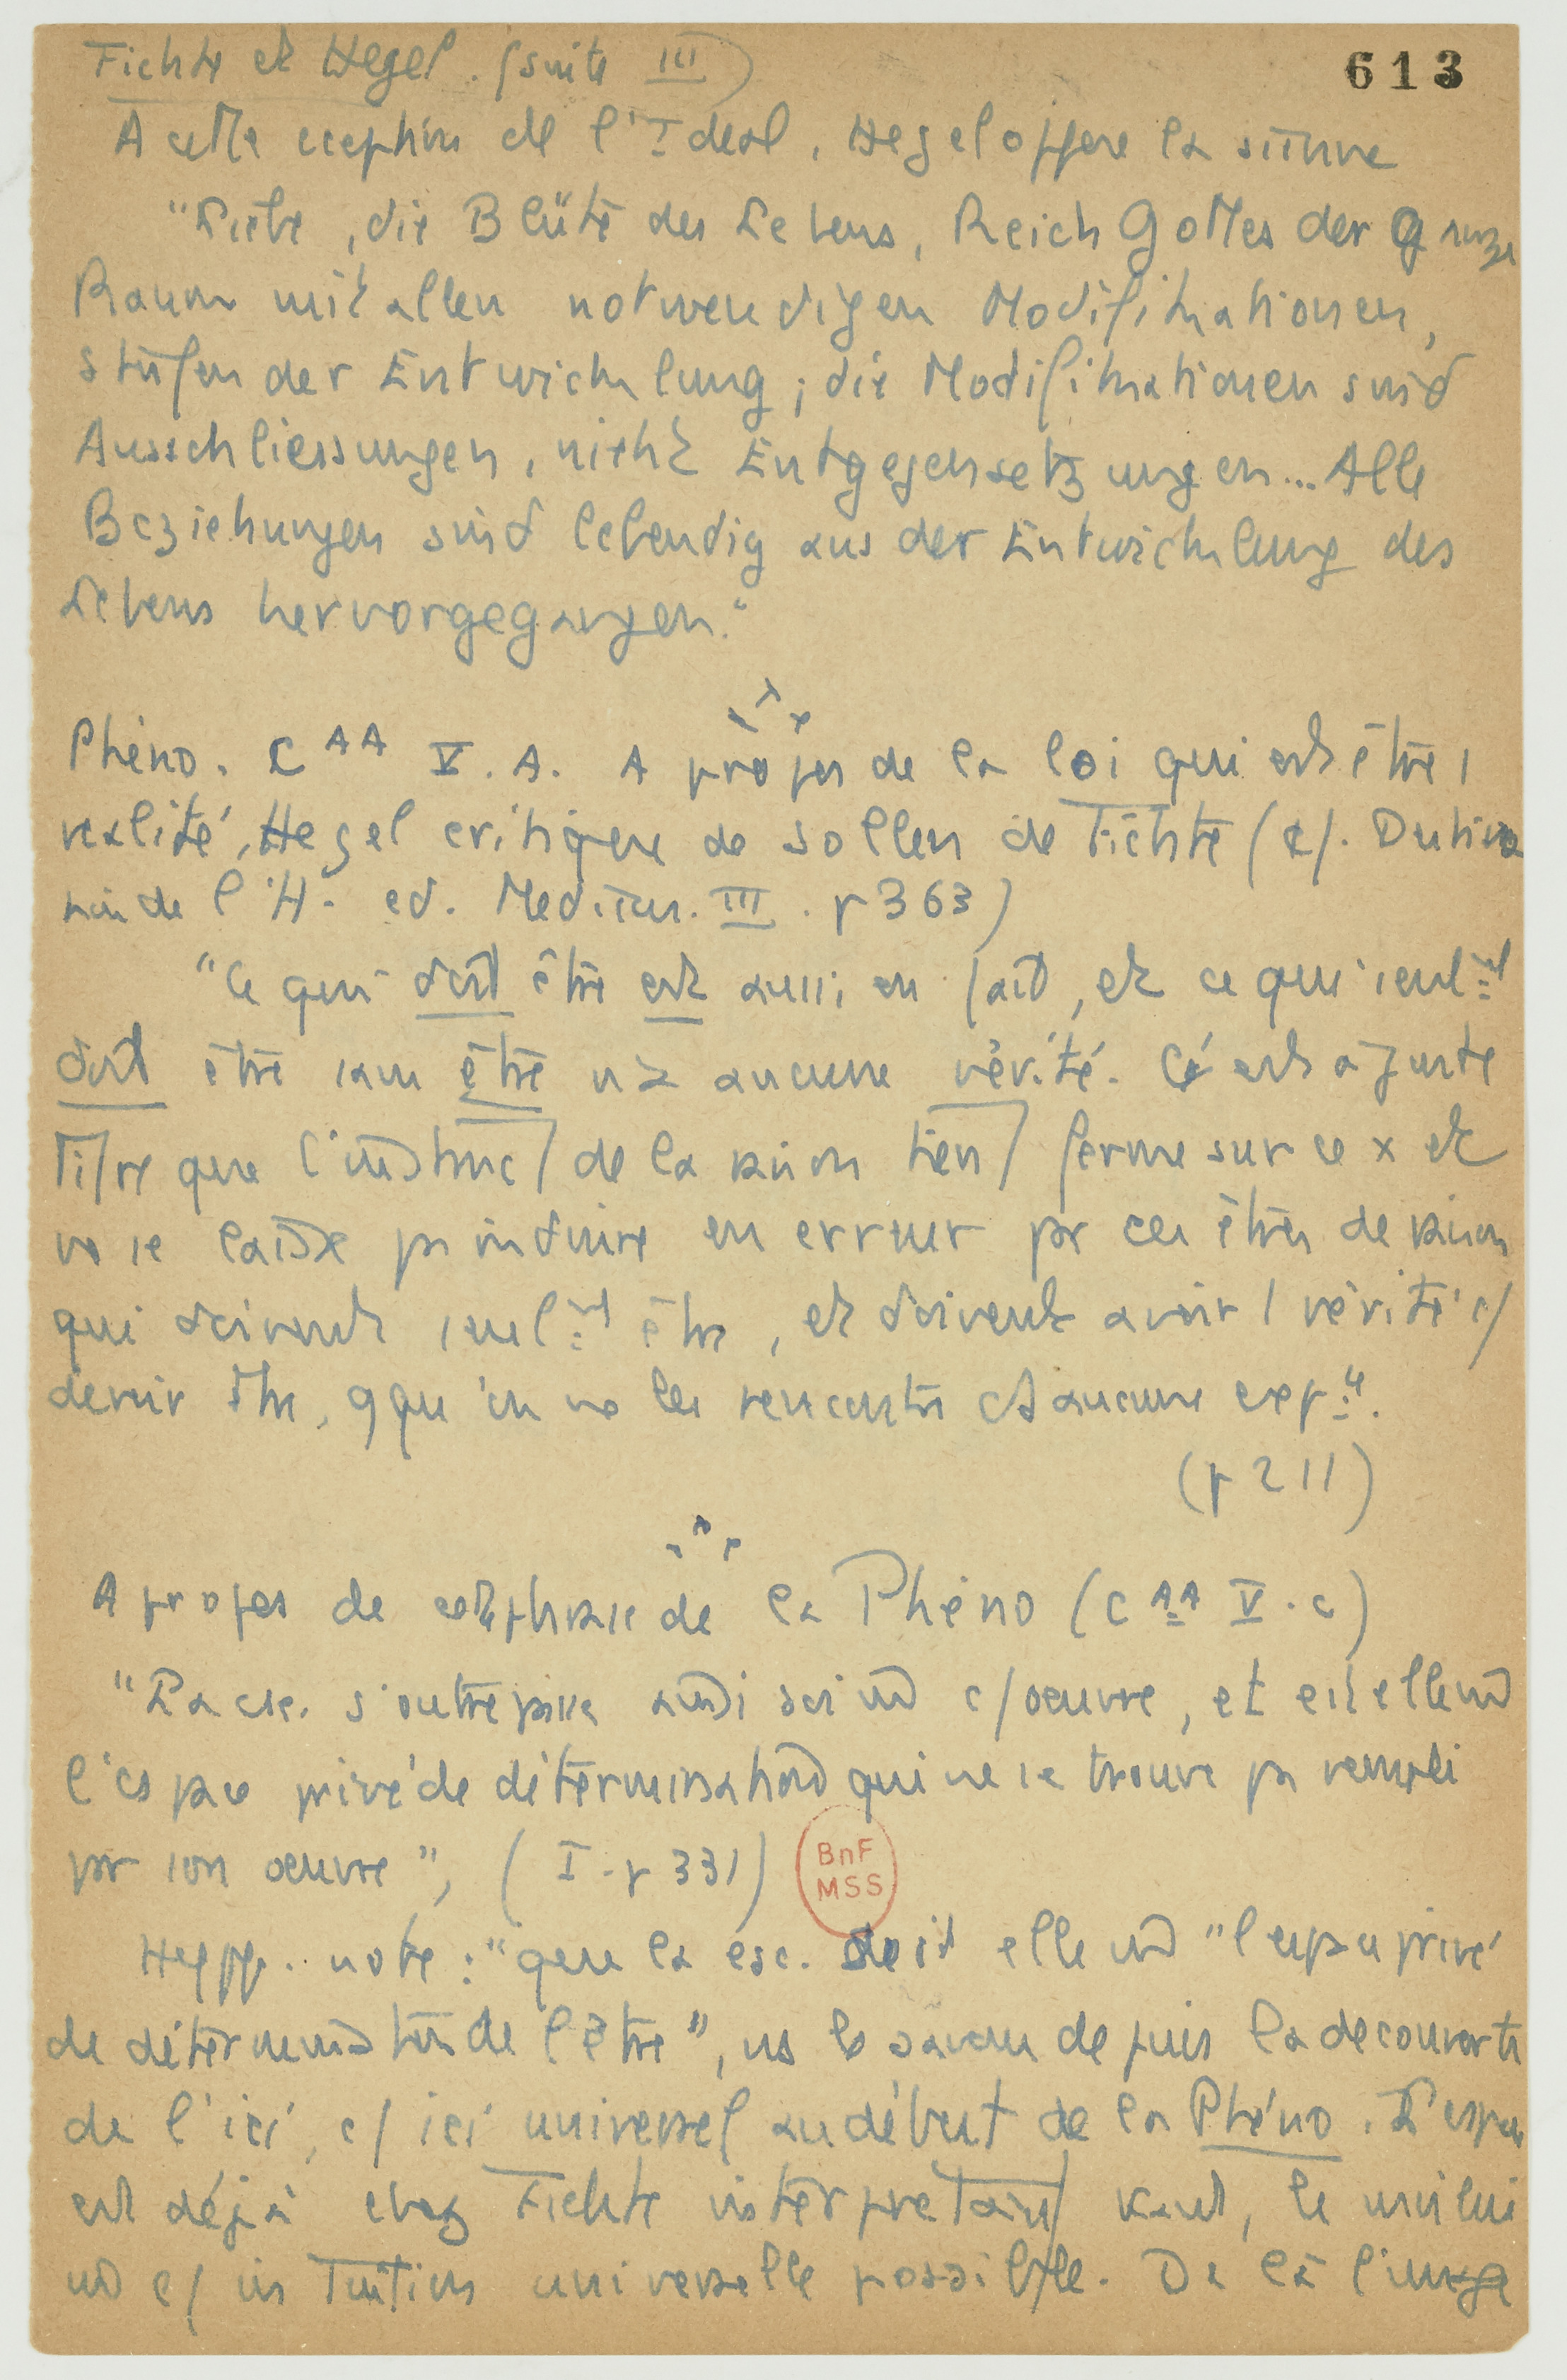 Fichte et Hegel. (suite III)
613
A cette cception de l'Ideal, Hegel oppose la sienne
"Liebe, die Blüte des Lebens, Reich Gottes der ganze
Raum mit allen notwendigen Modifikationen,
Stufen der Entwicklung; die Modifikationen sind
Ausschliessungen, nicht Entgegensetzungen... Alle
Beziehungen sind lebendig aus der Entwicklung des
Lebens hervorgegangen."
Phéno. C AA V. A. A propos de la loi qui est être /
réalité, Hegel critique de Sollen de Fichte (cf.
de l'H. ed. Medicus. III. p 363)
"Ce qui doit être est aussi en fait, et ce qui seul.t
doit être sans être n'a aucune vérité. C'est à juste
Titre que l'instinct de la raison tient ferme sur ce x et
ne se laisse pas induire en erreur par ces êtres de raison
qui doivent seul.t être, et doivent avoir / vérité c/
devoir être, qqu'on ne les rencontre ds aucune exp.ce.
(p 211)
A propos de cette phrase de la Phéno (C AA V. c)
"La csc. s'outrepasse ainsi soi m c/ oeuvre, et est elle m
l'espace privé de détermination qui ne se trouve pas rempli
par son oeuvre", (I. p 331)
BnF
MSS
Hypp. note: "que la csc. soit elle m "l'espace privé
de détermination de l'être", ns le savons depuis la découverte
de l'ici, c/ ici universel au début de la Phéno. L'espace
est déjà chez Fichte interprétant Kant, le milieu
m c/ intuition universelle possible. De là l'image